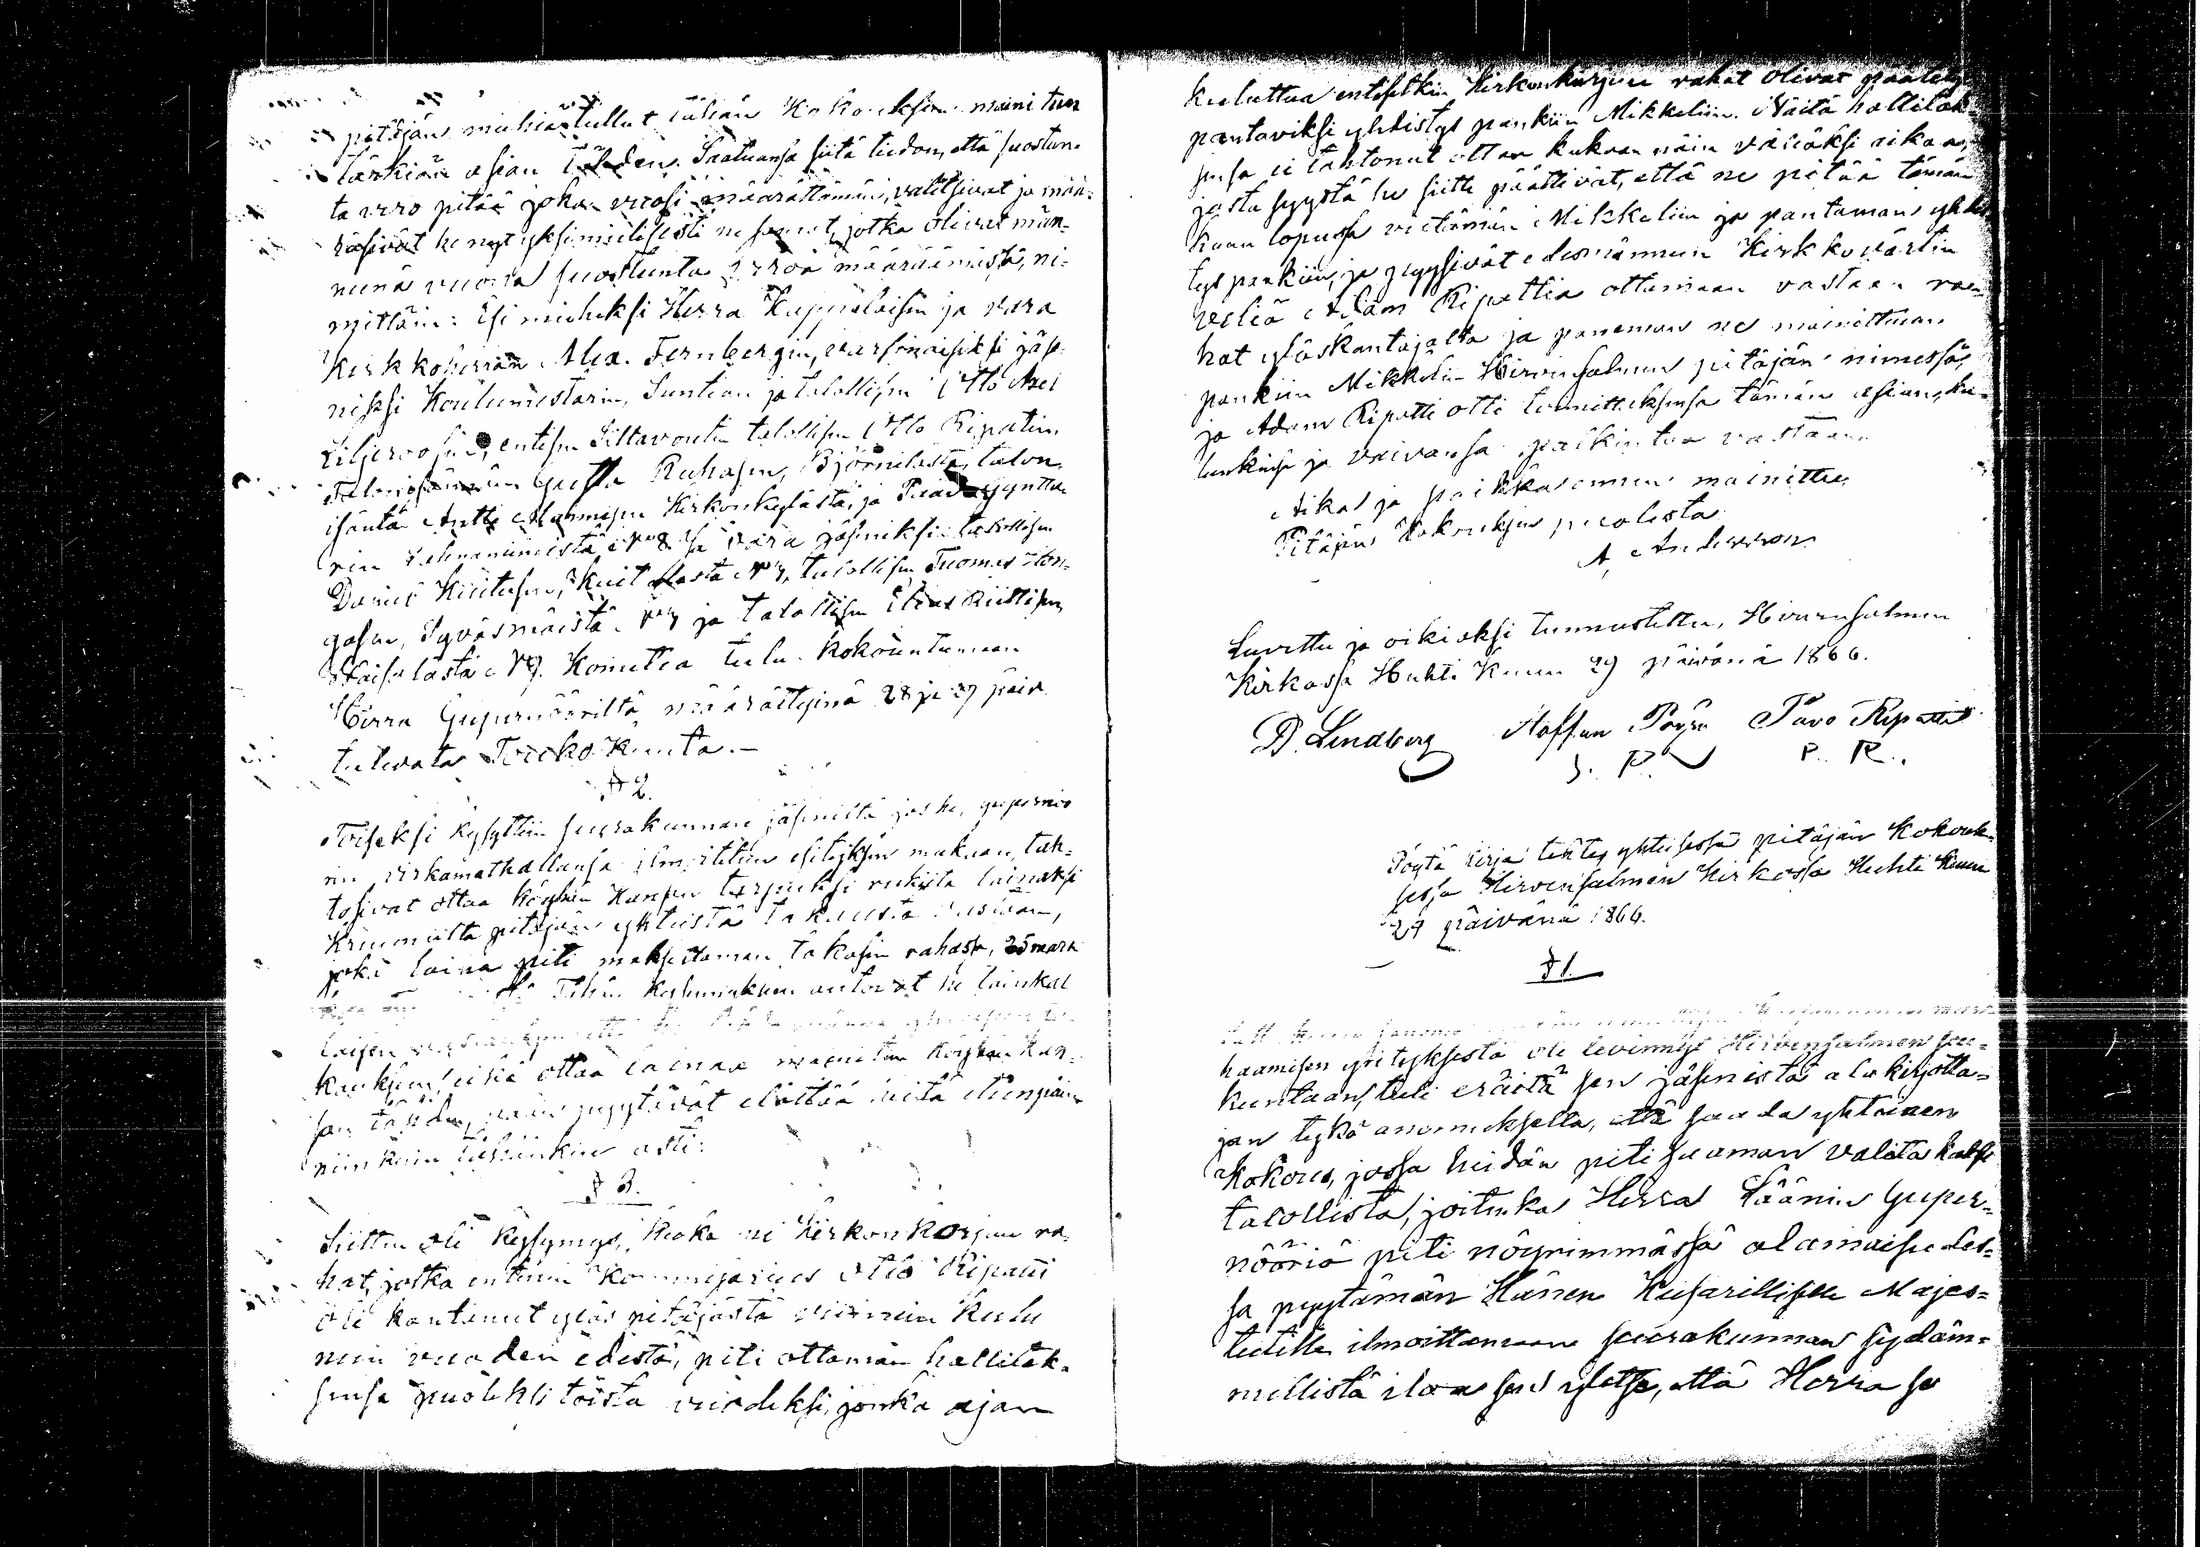 pitäjän miehiä tullut tähän Kokouksen mainitun
tärkiän asian tähden. Saatuansa siitä tiedon, että suostun-
ta vero pitää joka vuosi määrättämän, valitsivat ja mää-
räsivät he nyt yksimielisesti ne samat, jotka olivat män-
nenä vuonna suostunta veroa määräämästä, ni-
mittäin: Esi mieheksi Herra Kappalaisen ja vara
Kirkkoherran Alex. Fernbergin, varsinaisiksi jäse-
niksi Koulumestarin, Suntion ja talollisen Otto Axel
Liljeroosin, entisen Siltavoutin talollisen Otto Ripatin
Talonisännän Gusta Ruhasen, Björnilästä, talon
isäntä Antti Mannisen Kirkonkylästä, ja Paavo Pyntä-
rin Lahnaniemistä No 8 ja vara jäseniksi talollisen
Darius Kiitusen, Kuitulasta No 7, talollisen Tuomas Hon-
gasen, Syväsmäistä No 7 ja talollisen Elias Kiittisen
Väisälästä No 9. Komitea tulee kokountumaan
Herra Gupernööriltä määrättyinä 28 ja 29 päiv.
tulevata Toukokuuta.-
§ 2.
Toiseksi kysyttiin seurakunnan jäseniltä jos he, gupernöö
rin virkamathallansa ilmoitetun esityksen mukaan, tah-
tosivat ottaa köyhän Kansan tarpeeksi rukiita lainaksi
Kruunulta pitäjän yhteistä takausta vastaan,
joka laina piti maksettaman takasin rahassa, 25 mark
Tähän kysymykseen antovat he lainkal
laisen
kauksen, eikä ottaa lainaa mainitun köyhän Kan-
san tähden, vaan pyytävät elättää niitä eteenpäin
niinkuin tähänkin asti.
§ 3.
Sitten oli kysymys, kuka ne Kirkonkorjuu ra-
hat, jotka entinen Kommisarius Otto Ripatti
oli kantanut ylös pitäjästä viimein kulu
neen vuoden edestä, piti ottaman hallituk-
sensa puoleksi toista vuodeksi, jonka ajan
kuluttua entisetkin Kirkonkorjuu rahat olivat päätetyt
pantaviksi yhdistys pankiin Mikkeliin. Näitä hallituk-
sensa ei tahtonut ottaa kukaan näin väliäksi aikaa,
josta syystä he sitte päättivät, että ne pitää tämän
kuun lopussa vietämän Mikkeliin ja pantaman yhdis
tys pankiin, ja pyysivät edesmännen Kirkkovärtin
veliä Adam Ripattia ottamaan vastaan ra-
hat ylöskantajalta ja paneman ne mainittuun
pankiin Mikkelin Hirvensalmen pitäjän nimessä,
ja Adam Ripatti otti toimittaksensa tämän asian, ku-
tenkin ja vaivansa palkintoa vastaan.
Aika ja paikka ennen mainittu
Pitäjän Kokouksen puolesta
A. Andersson
Luettu ja oikiaksi tunnustettu, Hirvensalmen
Kirkossa Huhti Kuun 29 päivänä 1866.
D. Lindberg Staffan Pöyry Pavo Ripatti
S. P. P. R.
Pöytä Kirja tehty yhteisessä pitäjän Kokouk-
sessa Hirvensalmen Kirkossa Huhti Kuun
29 päivänä 1866.
§ 1.
haamisen yrityksestä oli levinnyt Hirvensalmen seu-
kuntaan, tuli eräistä sen jäsenistä alakirjotta-
jan tykö anomuksella, että saada yhteinen
kokous, jossa heidän piti saaman valita kaksi
talollista, joitenka Herra Läänin Guper-
nööriä piti nöyrimmässä alamaisuudes-
sa pyytämän Hänen Keisarilliselle Majes-
teetille ilmoittamaan seurakunnan sydäm-
mellistä iloa sen ylitse, että Herra se